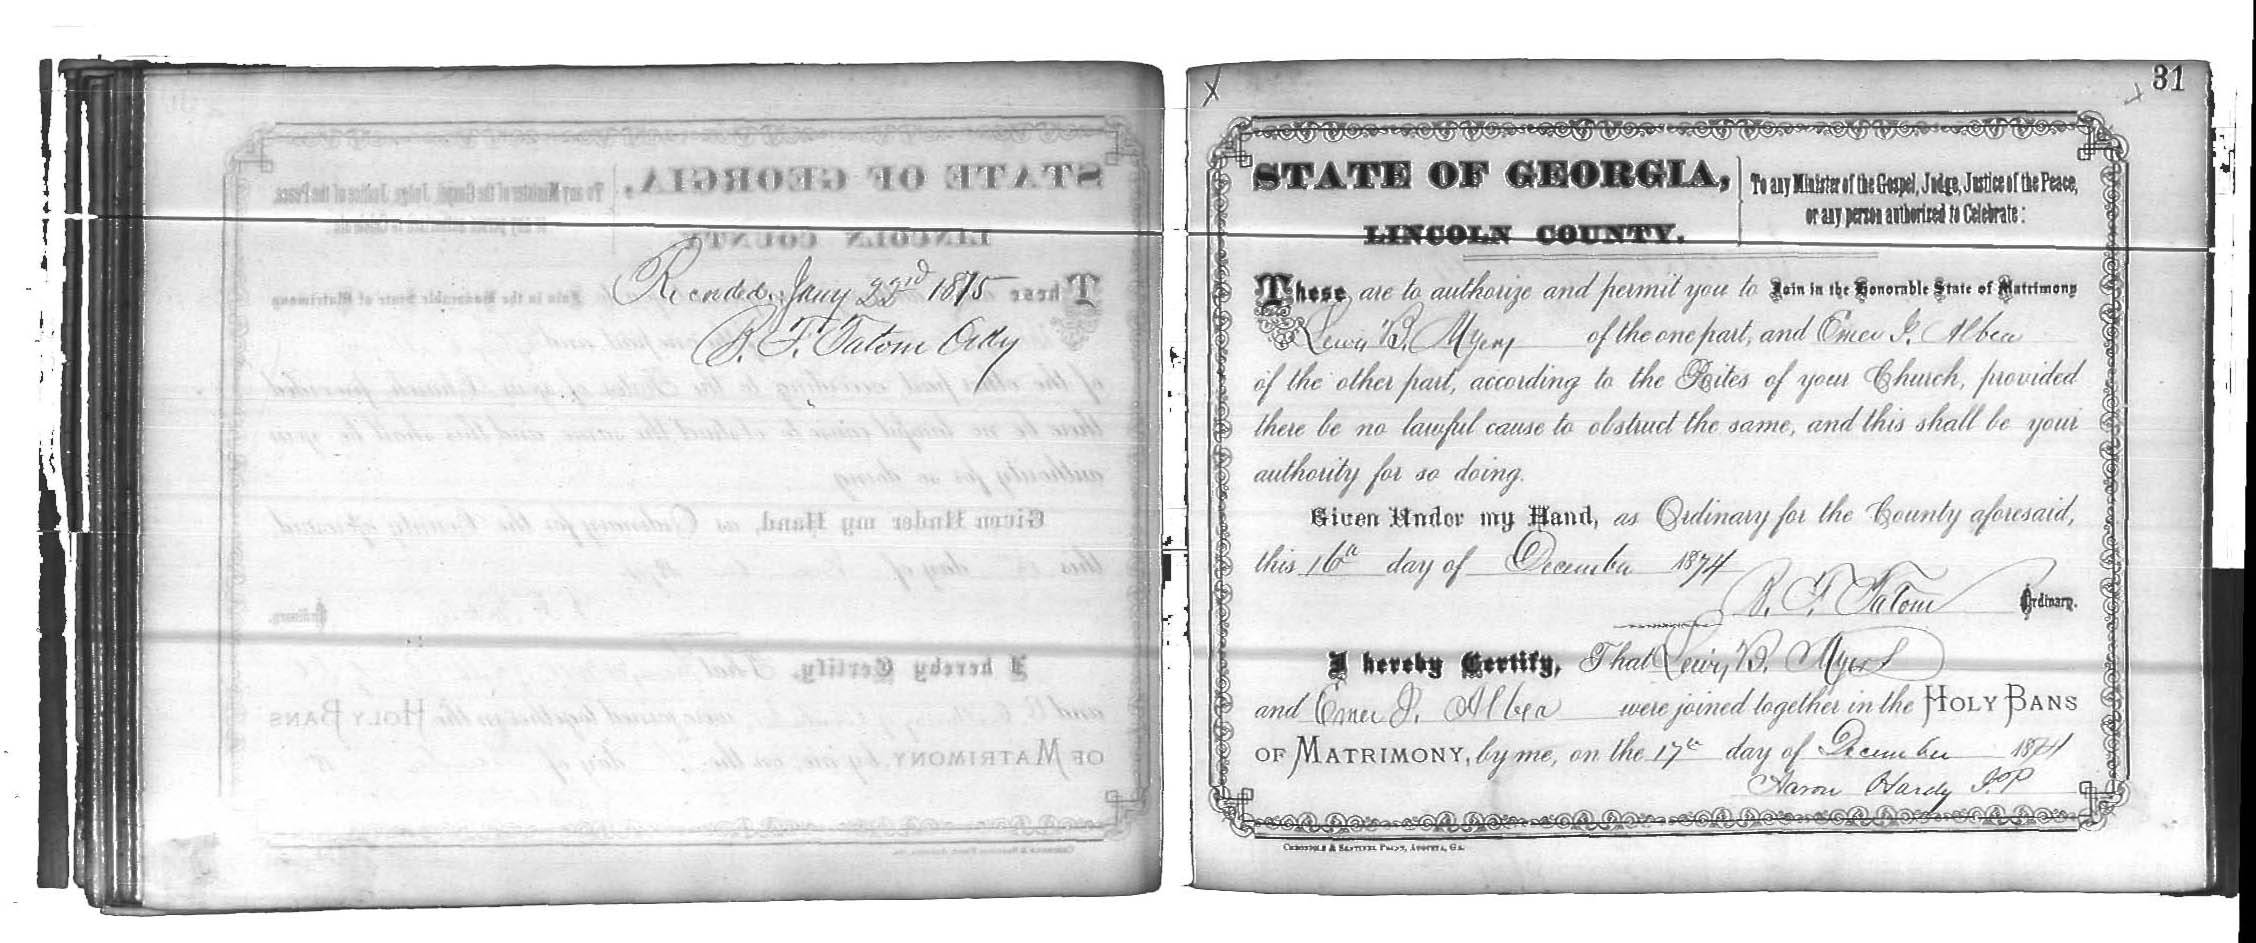 Recorded Jany 22nd 1875
B. F. Tatom Ordy
31
STATE OF GEORGIA,
LINCOLN COUNTY.
To any Minister of the Gospel, Judge, Justice of the Peace,
or any person authorized to Celebrate:
These are to authorize and permit you to Join in the Honorable State of Matrimony
Lewis B. Myers of the one part, and Emer J. Albea
of the other part, according to the Rites of your Church, provided
there be no lawful cause to obstruct the same, and this shall be your
authority for so doing.
Given Under my Hand, as Ordinary for the County aforesaid,
this 16th day of December 1874
B. F. Tatom Ordinary.
I hereby Certify, That Lewis B. Myers
and Emer J. Albea were joined together in the HOLY BANS
OF MATRIMONY, by me, on the 17th day of December 1874
Aaron Hardy J.P
CHRONICLE & SENTINEL PRINT, AUGUSTA, GA.